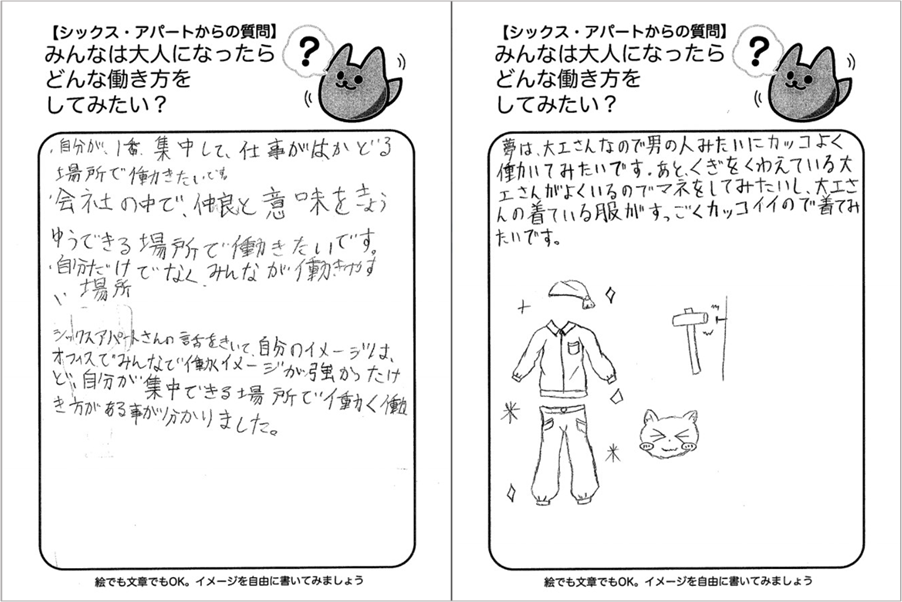 【シックス・アパートからの質問】
みんなは大人になったら
どんな働き方を
してみたい？
?
・自分が、1番、集中して、仕事がはかどる
場所で働きたいです
・会社の中で、仲良と意味をきょう
ゆうできる場所で働きたいです。
・自分だけでなく、みんなが働きやす
い場所
シックスアパートさんの話をきいて、自分のイメージは、
オフィスでみんなで働くイメージが強かったけ
ど、自分が集中できる場所で働く働
き方がある事が分かりました。
絵でも文章でもOK。イメージを自由に書いてみましょう
【シックス・アパートからの質問】
みんなは大人になったら
どんな働き方を
してみたい？
?
夢は、大工さんなので男の人みたいにカッコよく
働いてみたいです。あと、くぎをくわえている大
工さんがよくいるのでマネをしてみたいし、大工さ
んの着ている服がすっごくカッコイイので着てみ
たいです。
絵でも文章でもOK。イメージを自由に書いてみましょう